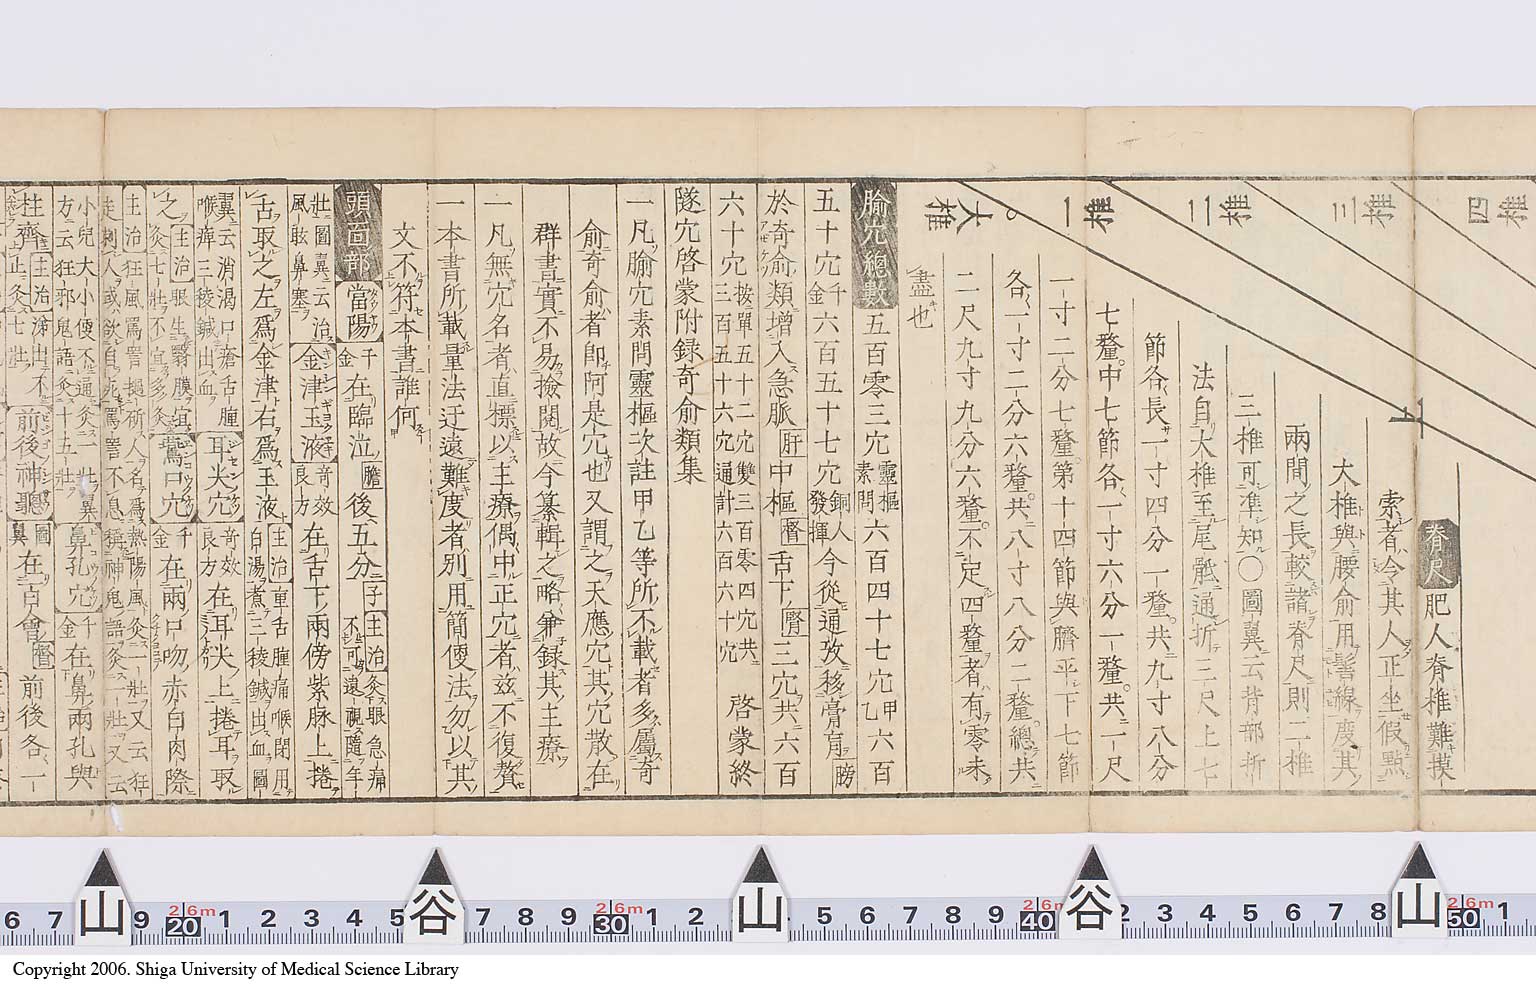 四椎
三椎
二椎
一椎
大椎
上
脊尺 肥人脊椎難摸
索者令其人正坐假點
大椎與腰俞用髻線度其
兩間之長較諸脊尺則二椎
三椎可準知○圖翼云背部折
法自大椎至尾骶通折三尺上七
節各長一寸四分一釐共九寸八分
七釐中七節各一寸六分一釐共一尺
一寸二分七釐第十四節與臍平下七節
各一寸二分六釐共八寸八分二釐總共
二尺九寸九分六釐不定四釐者有零未
盡也
腧穴總數 五百零三穴靈樞素問六百四十七穴甲乙六百
五十穴千金六百五十七穴銅人發揮今從通攷移膏肓膀
於奇俞類增入急脈肝中樞督舌下腎三穴共六百
六十穴按單五十二穴雙三百零四穴共三百五十六穴通計六百六十穴 啓蒙終
隧穴啓蒙附録奇俞類集
一凡腧穴素問靈樞次註甲乙等所不載者多屬奇
俞奇俞者即阿是穴也又謂之天應穴其穴散在
群書實不易撿閲故今纂輯之略兼録其主療
一凡無穴名者直標以主療偶中正穴者玆不復贅
一本書所載量法迂遠難度者別用簡便法勿以其
文不符本書誰何
頭面部 當陽千金在臨泣膽後五分子主治灸眼急痛不可遠視隨年
壯圖翼云治風眩鼻塞 金津玉液奇效良方在舌下兩傍紫脉上捲
舌取之左爲金津右爲玉液主治重舌腫痛喉閉用白湯煮三稜鍼出血圖
翼云消渴口瘡舌腫喉痺三稜鍼出血 耳尖穴奇效良方在耳尖上捲耳取
之主治眼生翳膜宜灸七壯不宜多灸 鷰口穴千金在兩口吻赤白肉際
主治狂風罵詈撾斫人名爲熱陽風灸一壯又云狂走刺人或欲自死罵詈不息稱神鬼語灸一壯又云
小兒大小便不通灸一壯翼方云狂邪鬼語灸十五壯 鼻孔穴千金在鼻兩孔與
柱齊上主治涕出不止灸七壯 前後神聰圖翼在百會督前後各一
Copyright 2006. Shiga University of Medical Science Library
山 谷 山 谷 山
6 7 9 20 1 2 3 4 5 7 8 9 30 1 2 5 6 7 8 9 40 2 3 4 5 6 7 8 50 1
2.6m